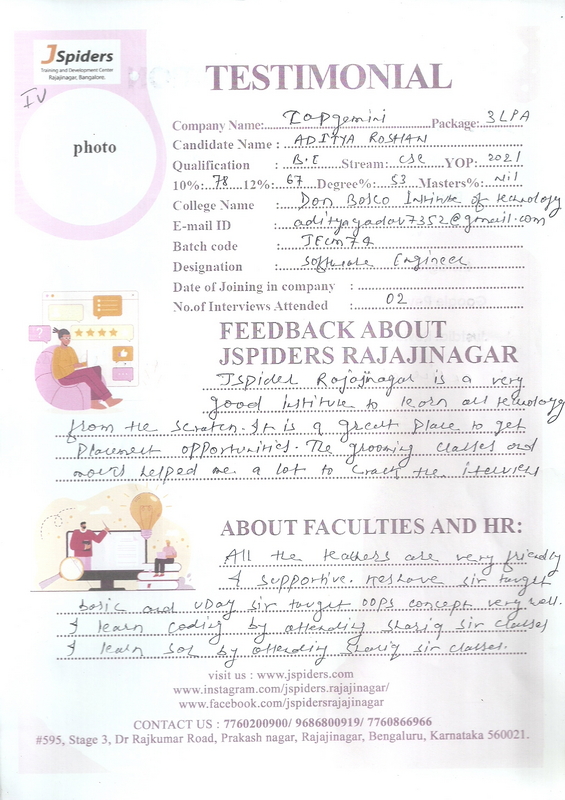 JSpiders
Training and Development Center
Rajajinagar, Bangalore.
IV
TESTIMONIAL
photo
Company Name: Capgemini Package: 3LPA
Candidate Name : ADITYA ROSHAN
Qualification : B.E Stream: CSE YOP: 2021
10%: 78 12%: 67 Degree%: 53 Masters%: Nil
College Name : Don Bosco Institute of technology
E-mail ID : adityayadav7352@gmail.com
Batch code : JECM74
Designation : Software Engineer
Date of Joining in company :
No.of Interviews Attended : 02
FEEDBACK ABOUT
JSPIDERS RAJAJINAGAR
JSpider Rajajinagar is a very
good institute to learn all technology
from the scratch. It is a great place to get
Placement opportunities. The grooming classes and
mocks helped me a lot to crack the interview
ABOUT FACULTIES AND HR:
All the teachers are very friendly
& supportive. Keshave sir taught
basic and UDay sir taught OOPS concept very well.
I learn coding by attending shariq sir classes
I learn SQL by attending shariq sir classes.
visit us : www.jspiders.com
www.instagram.com/jspidersrajajinagar/
www.facebook.com/jspidersrajajinagar
CONTACT US : 7760200900/ 9686800919/ 7760866966
#595, Stage 3, Dr Rajkumar Road, Prakash nagar, Rajajinagar, Bengaluru, Karnataka 560021.